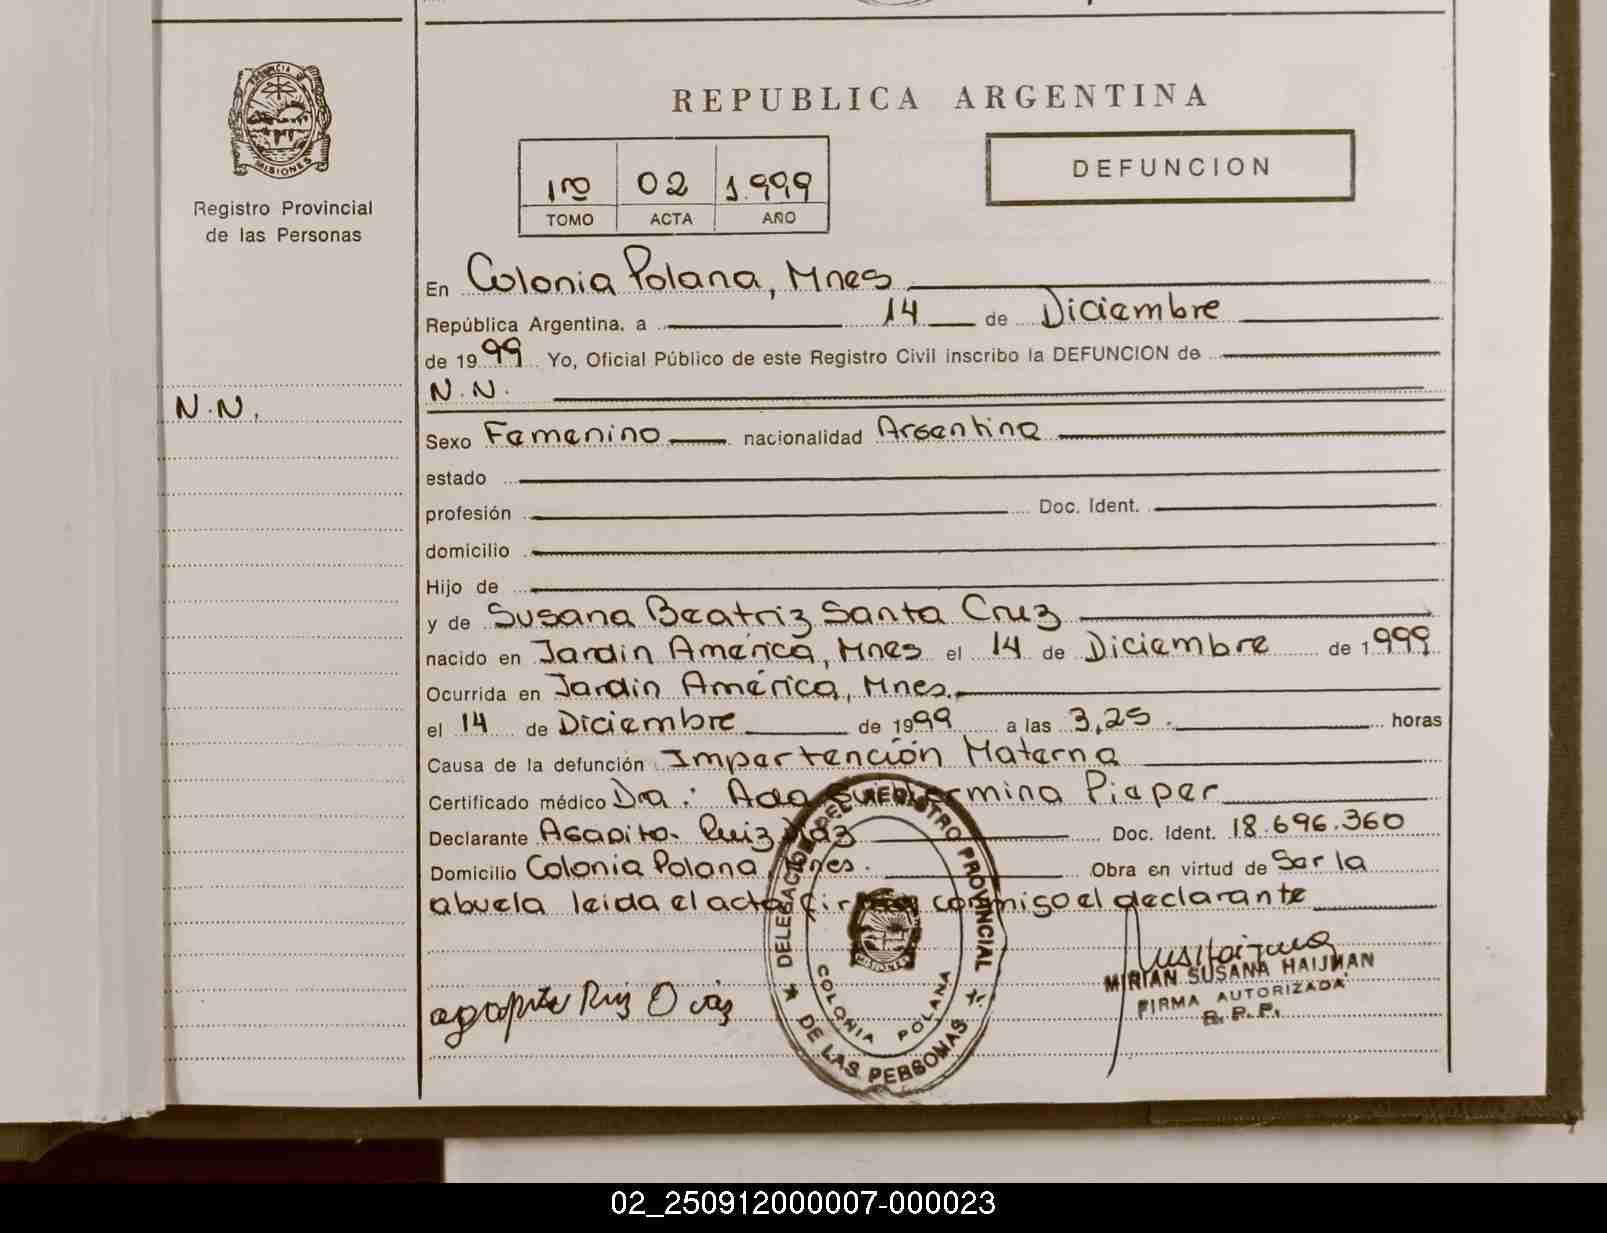 PROVINCIA DE
MISIONES
Registro Provincial
de las Personas
N.N.
REPUBLICA ARGENTINA
1ro 02 1.999
TOMO ACTA AÑO
DEFUNCION
En Colonia Polana, Mnes
República Argentina, a 14 de Diciembre
de 1999 Yo, Oficial Público de este Registro Civil inscribo la DEFUNCION de
N.N.
Sexo Femenino nacionalidad Argentina
estado
profesión Doc. Ident.
domicilio
Hijo de
y de Susana Beatriz Santa Cruz
nacido en Jardin América, Mnes el 14 de Diciembre de 1999
Ocurrida en Jardin América, Mnes.
el 14 de Diciembre de 1999 a las 3,25 . horas
Causa de la defunción Impertención Materna
Certificado médico Dra: Ada Pieper
Declarante Agapito Ruiz Diaz Doc. Ident. 18.696.360
Domicilio Colonia Polana, Mnes. Obra en virtud de Ser la
abuela leida el acta firma conmigo el declarante
agapito Ruiz Diaz
MIRIAN SUSANA HAIJMAN
FIRMA AUTORIZADA
R.P.P.
DELEGACION DEL REGISTRO PROVINCIAL
DE LAS PERSONAS
COLONIA POLANA
MISIONES
02_250912000007-000023